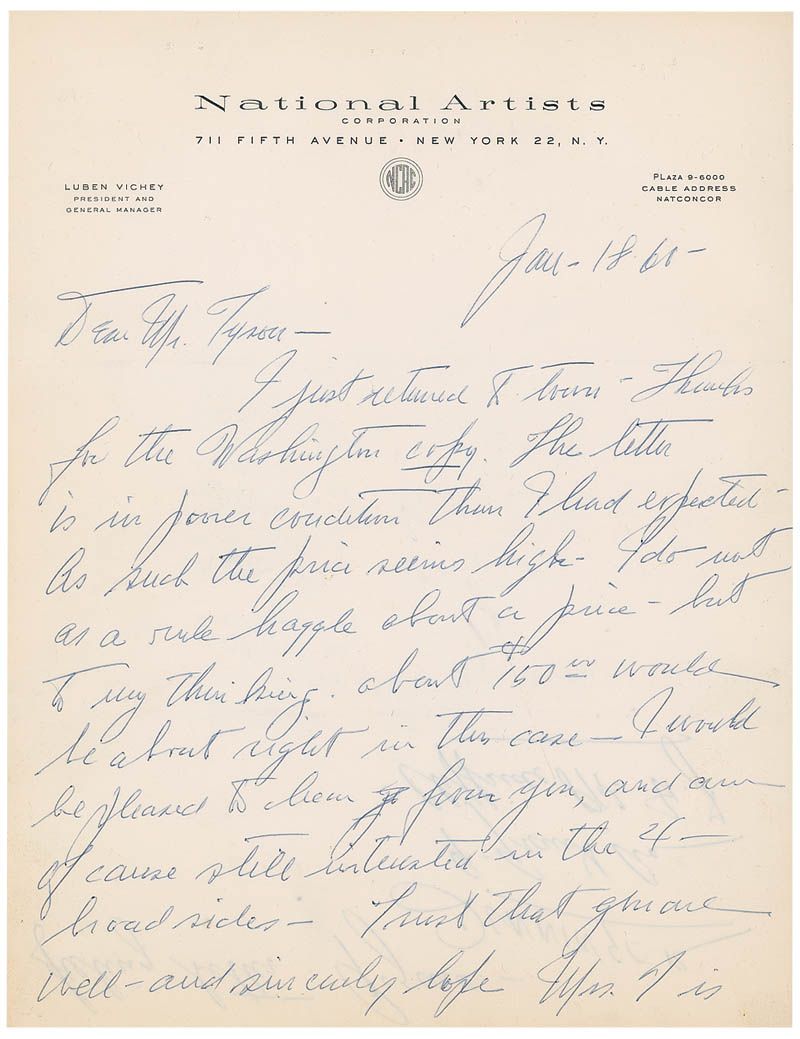 National Artists
CORPORATION
711 FIFTH AVENUE • NEW YORK 22, N. Y.
NCAC
LUBEN VICHEY
PRESIDENT AND
GENERAL MANAGER
PLAZA 9-6000
CABLE ADDRESS
NATCONCOR
Jan - 18 60 -
Dear Mr. Tyson —
I just returned to town - Thanks
for the Washington copy. The letter
is in poorer condition than I had expected -
As such the price seems high - I do not
as a rule haggle about a price - but
to my thinking. about $150 00 would
be about right in this case — I would
be pleased to hear from you, and am
of cause still interested in the 4 —
broadsides — Trust that you are
well - and sincerely hope Mrs. T is